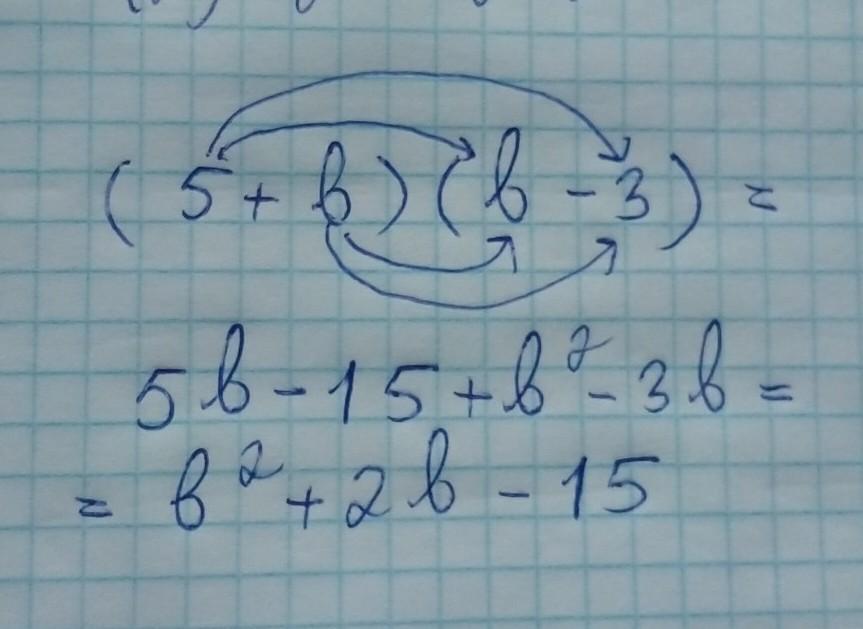 (5+b)(b-3)=
5b-15+b²-3b=
=b²+2b-15